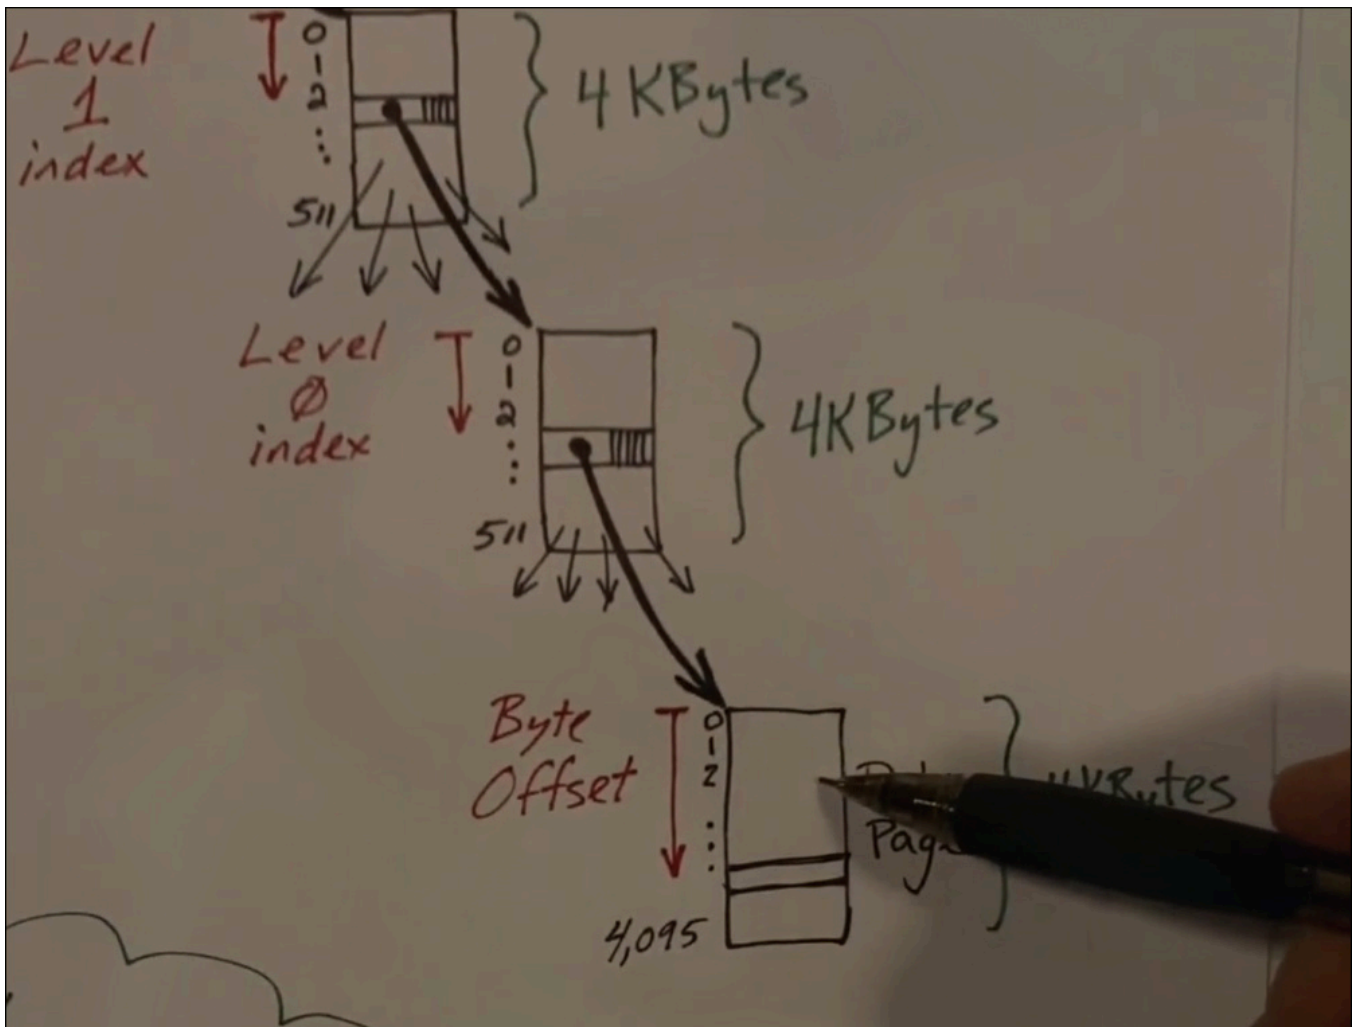 Level
1
index
0
1
2
511
4 KBytes
Level
Ø
index
0
1
2
511
4KBytes
Byte
Offset
0
1
2
4,095